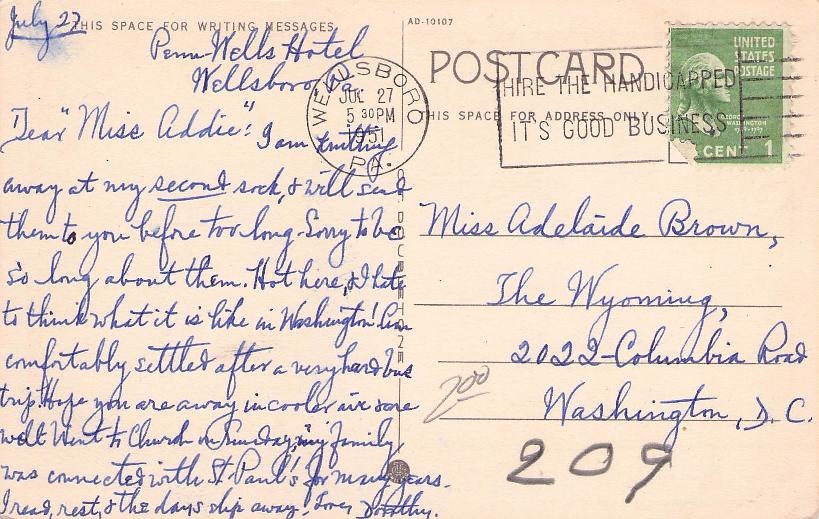 July 27
THIS SPACE FOR WRITING MESSAGES
Penn-Wells Hotel
Wellsboro, Pa.
Dear "Miss Addie": I am knitting
away at my second sock, & will send
them to you before too long. Sorry to be
so long about them. Hot here, & I hate
to think what it is like in Washington! Am
comfortably settled after a very hard bus
trip. Hope you are away in cooler air
Went to Church on Sunday, my family
was connected with St. Paul's for many years.
I read, rest, & the days slip away! Love, Dorothy.
AD-10107
POSTCARD
THIS SPACE FOR ADDRESS ONLY
WELLSBORO
JUL 27
5 30 PM
1951
PA.
HIRE THE HANDICAPPED
IT'S GOOD BUSINESS
UNITED
STATES
POSTAGE
WASHINGTON
CENT 1
Miss Adelaide Brown,
The Wyoming,
2022-Columbia Road
Washington, D.C.
200
209